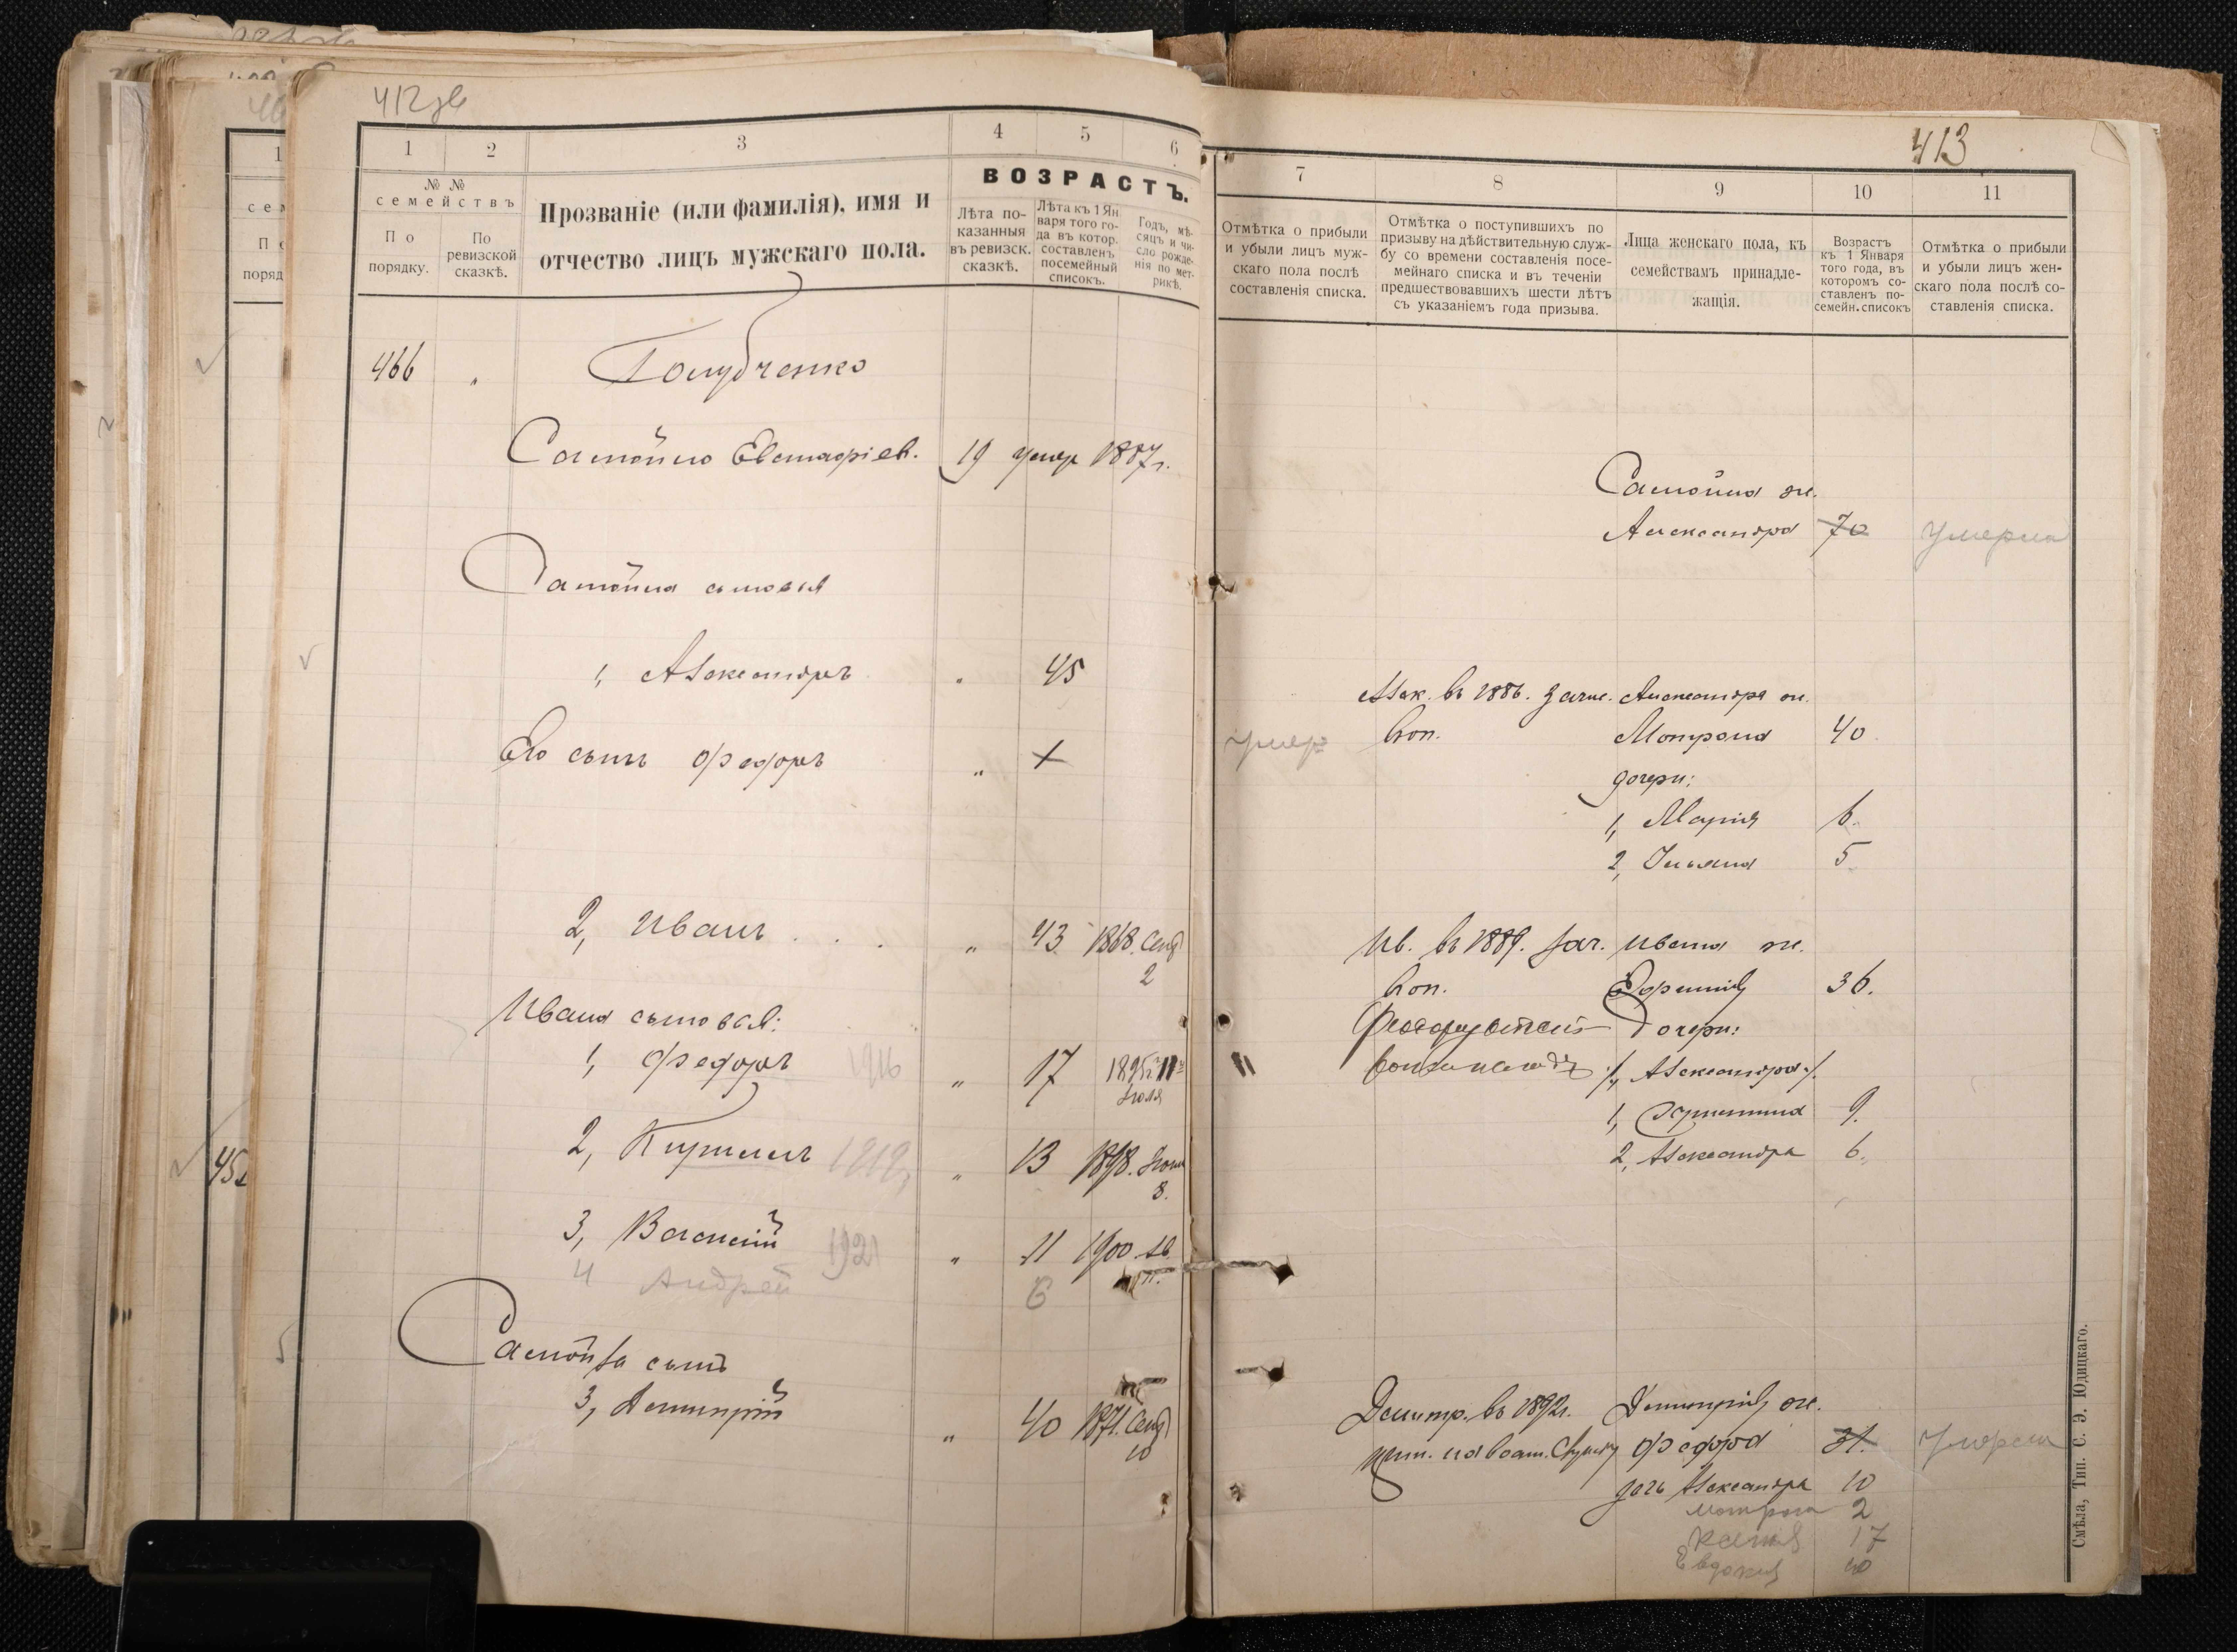 412зв
1
2
3
4
5
6
№ №
семействъ
По
порядку.
По
ревизской
сказкѣ.
Прозваніе (или фамилія), имя и
отчество лицъ мужскаго пола.
ВОЗРАСТЪ.
Лѣта по-
казанныя
въ ревизск.
сказкѣ.
Лѣта къ 1 Ян
варя того го-
да въ котор.
составленъ
посемейный
списокъ.
Годъ, мѣ-
сяцъ и чи-
сло рожде-
нія по мет-
рикѣ.
466 „ Голубченко
Самойло Евстафіев. 19 умер 1887 г.
Самойла сыновья
1, Александръ „ 45
Его сынъ Федоръ „
2, Иванъ „ 43 1868. Сент
2
Ивана сыновья:
1, Федоръ 1916 „ 17 1895 г. 11
Іюля
2, Кириллъ 1919 „ 13 1898. Іюн
8.
3, Василій 1921 „ 11 1900.
4 Андрей 6
Самойла сынъ
3, Димитрій „ 40 1871. Сент
10
413
7
8
9
10
11
Отмѣтка о прибыли
и убыли лицъ муж-
скаго пола послѣ
составленія списка.
Отмѣтка о поступившихъ по
призыву на дѣйствительную служ-
бу со времени составленія посе-
мейнаго списка и въ теченіи
предшествовавшихъ шести лѣтъ
съ указаніемъ года призыва.
Лица женскаго пола, къ
семействамъ принадле-
жащія.
Возрастъ
къ 1 Января
того года, въ
которомъ со-
ставленъ по-
семейн. списокъ
Отмѣтка о прибыли
и убыли лицъ жен-
скаго пола послѣ со-
ставленія списка.
Самойла ж.
Александра 70 умерла
Алек. въ 1886. зачис. Александра ж.
умеръ Воп. Мотрона 40
дочери:
1, Марія 6.
2, Ульяна 5
Ив. въ 1889. зач. Ивана ж.
Воп. Ефимія 36.
дочери:
1, Александра
1, Христина 9.
2, Александра 6.
Димитр. въ 1892 г. Димитрія ж.
прин. на воен. Службу Федора 31. умерла
дочь Александра 10
Мотрона 2
17
Евдокія 40
Смѣла, Тип. С. Э. Юдицкаго.